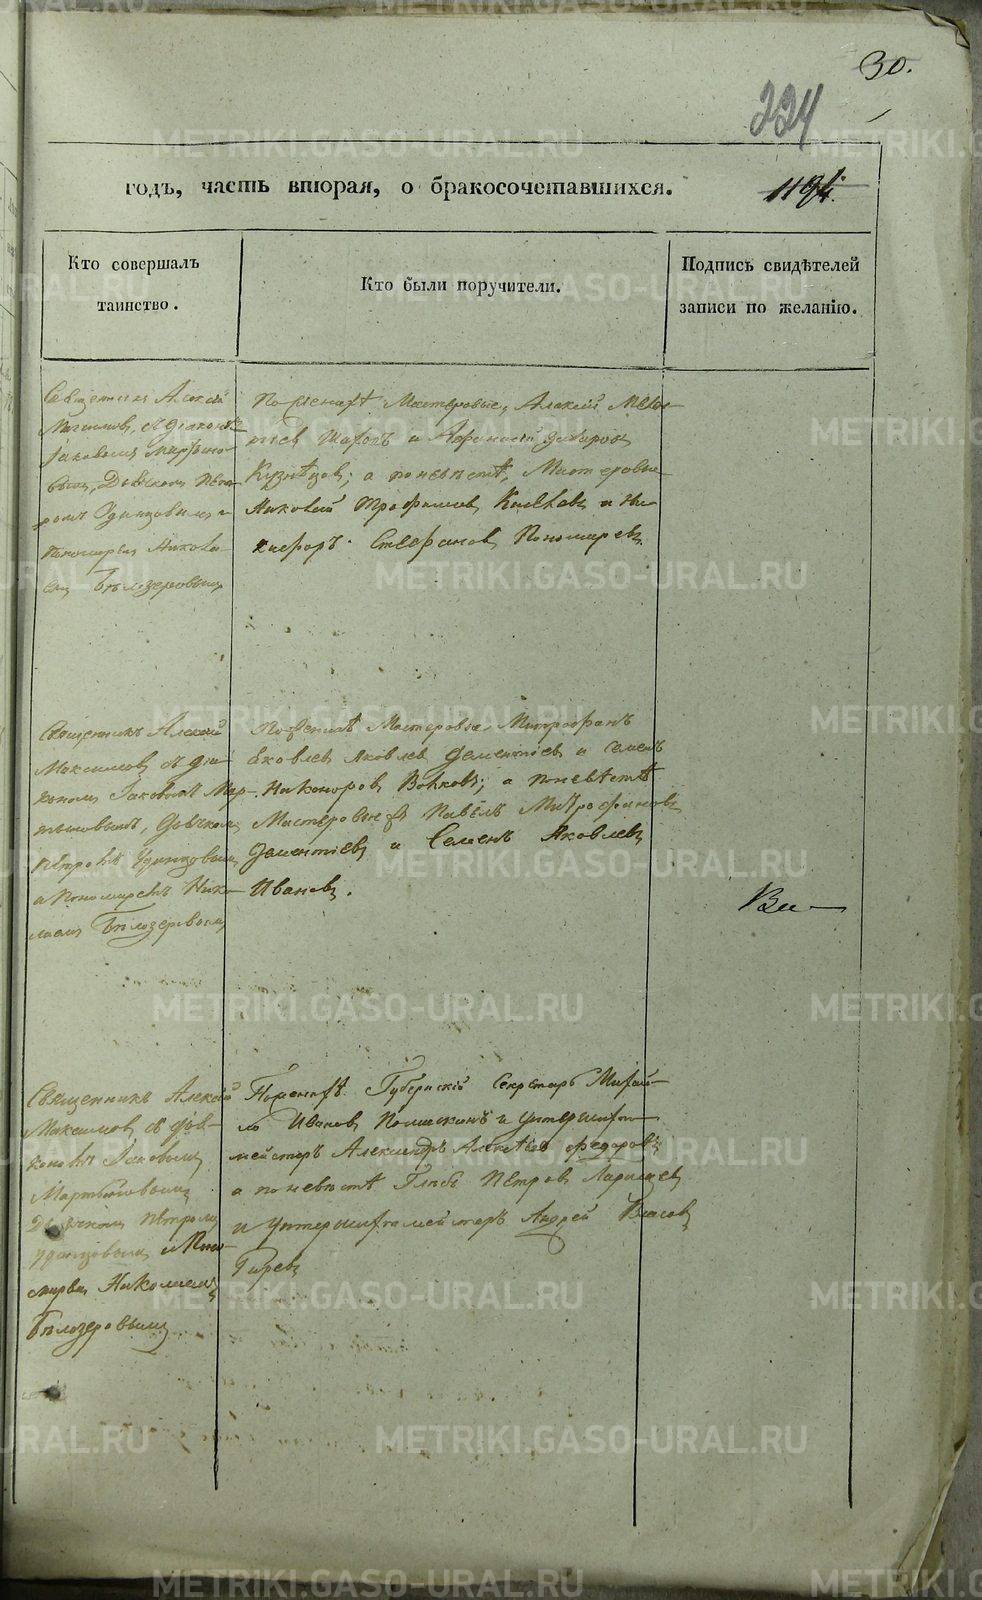 30.
224
годъ, часть вторая, о бракосочетавшихся.
1194.
Кто совершалъ
таинство.
Кто были поручители.
Подпись свидѣтелей
записи по желанію.
Священникъ Алексѣй
Максимовъ, съ діакономъ
Іаковомъ Мартыно-
вымъ, Дьячкомъ Пет-
ромъ Одинцовымъ и
Пономарем Никола-
ем Бѣлозеровымъ
По женихѣ Мастеровые, Алексѣй
и Афанасій Захаровъ
Кузнецовъ; а по невѣстѣ, Мастеровые
Трофимовъ и Ни-
кифоръ Стефановъ Пономаревъ
Священникъ Алексѣй
Максимовъ съ діа-
кономъ Іаковомъ Мар-
тыновымъ, Дьячкомъ
Петромъ Удинцовымъ
а Пономаремъ Нико-
лаемъ Бѣлозеровымъ
По женихѣ Мастеровые Митрофанъ
Яковлевъ Дементіевъ и Семенъ
Никоноровъ Волковъ; а по невѣстѣ
Мастеровые Павелъ Митрофановъ
Дементіевъ и Семенъ Яковлевъ
Ивановъ.
Ви
Священникъ Алексѣй
Максимовъ съ дья-
кономъ Іаковомъ
Мартыновымъ
Дьячкомъ Петромъ
Удинцовымъ и Поно-
марем Николаемъ
Бѣлозеровымъ
По женихѣ Губернскій Секретарь Михай-
ло Ивановъ и унтершихт-
мейстеръ Александръ Алексѣевъ Федоровъ
а по невѣстѣ Глебъ Петровъ Ларищев
и Унтершихтмейстеръ Андрей Власовъ
Гиревъ
METRIKI.GASO-URAL.RU